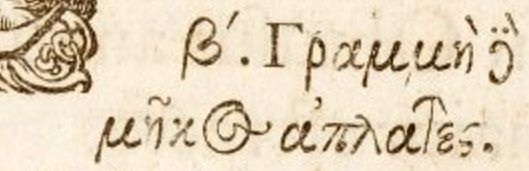 β´. Γραμμὴ δὲ
μῆκος ἀπλατές.